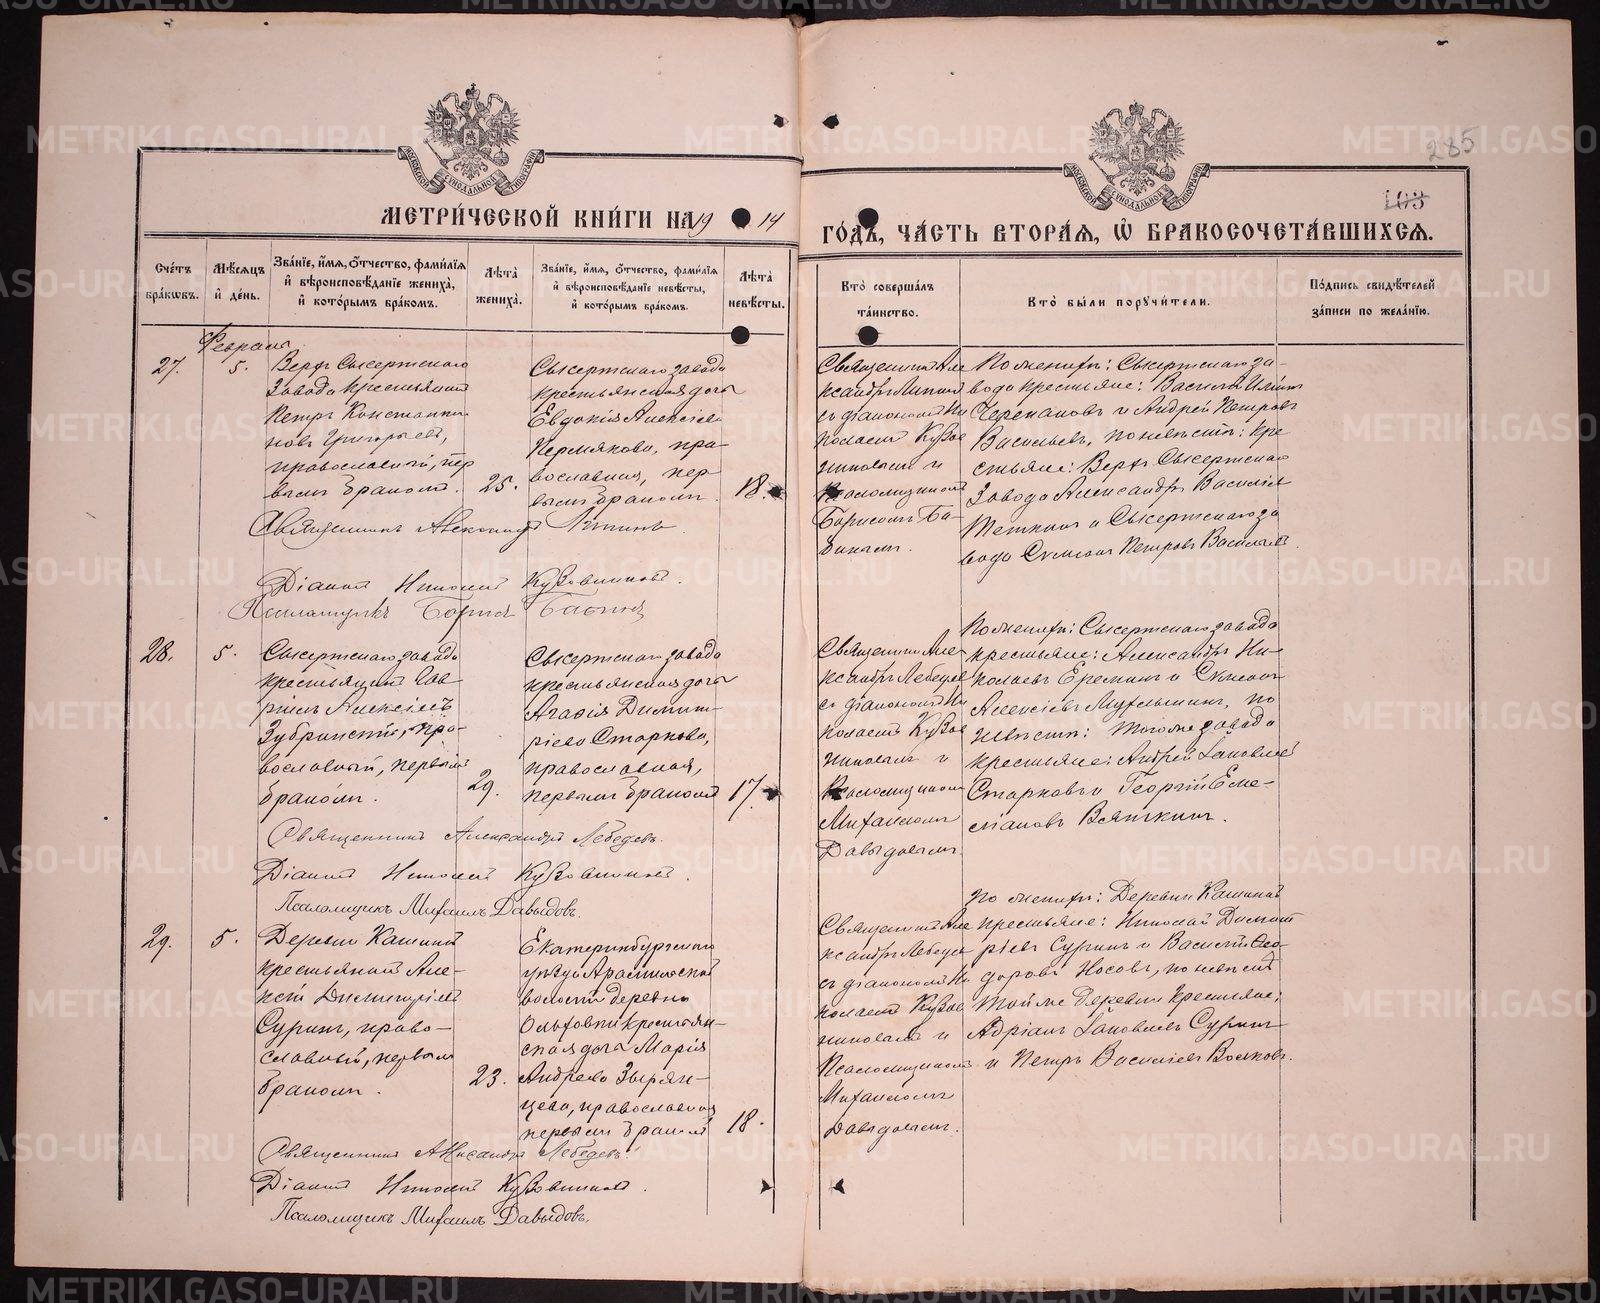 МЕТРИ́ЧЕСКОЙ КНИ́ГИ НА 19 14
ГО́ДЪ, ЧА́СТЬ ВТОРА́Я, Ѡ҆ БРАКОСОЧЕТА́ВШИХСѦ.
285
103
МОСКОВСКОЙ СѴНОДАЛЬНОЙ ТИПОГРАФІИ
МОСКОВСКОЙ СѴНОДАЛЬНОЙ ТИПОГРАФІИ
Сче́тъ бра́кѡвъ.
Мѣ́сѧцъ и҆ де́нь.
Зва́нїе, и҆́мѧ, ѻ҆́тчество, фамилїѧ и҆ вѣроисповѣ́данїе жениха̀, и҆ кото́рымъ бра́комъ.
Лѣта̀ жениха̀.
Зва́нїе, и҆́мѧ, ѻ҆́тчество, фами́лїѧ и҆ вѣроисповѣ́данїе невѣ́сты, и҆ кото́рымъ бра́комъ.
Лѣта̀ невѣ́сты.
Кто̀ соверша́лъ та́инство.
Кто̀ бы́ли порꙋчи́тели.
По́дпись свидѣ́телей за́писи по жела́нїю.
Февраль
27.
5.
Верхъ Сысертскаго
завода крестьянинъ
Петръ Константи
новъ Григорьевъ,
православный, пер
вымъ бракомъ.
25.
Сысертскаго завода
крестьянская дочь
Евдокія Алексѣева
Пермякова, пра-
вославная, пер
вымъ бракомъ.
18.
Священникъ Але
ксандръ
съ діакономъ Ни
колаемъ Кузов
никовымъ и
Псаломщикомъ
Борисомъ Ба-
бинымъ.
По женихѣ: Сысертскаго за-
вода крестьяне: Василій Ильинъ
Черепановъ и Андрей Петровъ
Васильевъ, по невѣстѣ: кре
стьяне: Верхъ Сысертскаго
завода Александръ Василіевъ
Теткинъ и Сысертскаго за
вода Симеонъ Петровъ Васильевъ.
Священникъ Александръ
Діаконъ Николай Кузовниковъ.
Псаломщикъ Борисъ Бабинъ
28.
5.
Сысертскаго завода
крестьянинъ Гав-
ріилъ Алексѣевъ
Зубринскій, пра-
вославный, первымъ
бракомъ.
29.
Сысертскаго завода
крестьянская дочь
Агафія Димит-
ріева Старкова,
православная,
первымъ бракомъ
17.
Священникъ Але-
ксандръ Лебедевъ
съ діакономъ Ни
колаемъ Кузов
никовымъ и
Псаломщикомъ
Михаиломъ
Давыдовымъ.
По женихѣ: Сысертскаго завода
крестьяне: Александръ Ни-
колаевъ Ереминъ и Симеонъ
Алексѣевъ по
невѣстѣ: того же завода
крестьяне: Андрей Іаковлевъ
Старковъ и Георгій Еме-
ліановъ Вяткинъ.
Священникъ Александръ Лебедевъ.
Діаконъ Николай Кузовниковъ.
Псаломщикъ Михаилъ Давыдовъ.
29.
5.
Деревни Кашиной
крестьянинъ Але-
ксѣй Димитріевъ
Суринъ, право-
славный, первымъ
бракомъ.
23.
Екатеринбургскаго
уѣзда Арамильской
волости деревни
Ольховки крестьян-
ская дочь Марія
Андреева Зырян-
цева, православная
первымъ бракомъ
18.
Священникъ Але
ксандръ Лебедевъ
съ діакономъ Ни
колаемъ Кузов
никовымъ и
Псаломщикомъ
Михаиломъ
Давыдовымъ.
По женихѣ: Деревни Кашиной
крестьяне: Николай Димит
ріевъ Суринъ и Василій Ѳео-
доровъ Носовъ, по невѣстѣ
той же деревни крестьяне:
Адріанъ Іаковлевъ Суринъ
и Петръ Василіевъ Волковъ.
Священникъ Александръ Лебедевъ.
Діаконъ Николай Кузовниковъ.
Псаломщикъ Михаилъ Давыдовъ.
METRIKI.GASO-URAL.RU